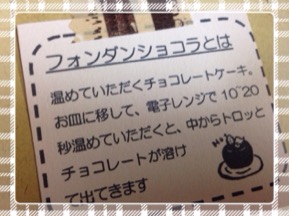 フォンダンショコラとは
温めていただくチョコレートケーキ。
お皿に移して、電子レンジで10~20
秒温めていただくと、中からトロッと
チョコレートが溶け
て出てきます